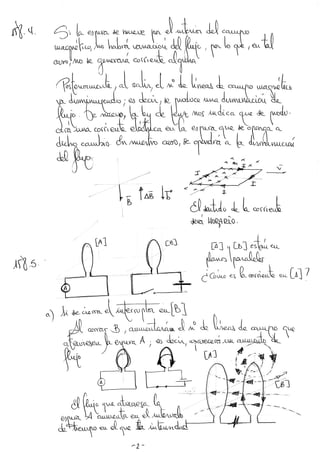 Nº 4. Si la espira se mueve por el interior del campo
magnético, no habrá variación del flujo, por lo que, en tal
caso, no se generará corriente alguna
Posteriormente, al salir, el nº de líneas de campo magnético
va disminuyendo; es decir, se produce una disminución de
flujo. De nuevo, la ley de Lenz nos indica que se produ-
cirá una corriente eléctrica en la espira que se oponga a
dicho cambio. En nuestro caso, se opondrá a la disminución
del flujo.
B ΔB B
I
El sentido de la corriente
será HORARIO.
[A] [B]
Nº 5.
[A] y [B] están en
planos paralelos
¿Cómo es la corriente en [A]?
a) Si se cierra el interruptor en [B]
Al cerrar B, aumentarán el nº de líneas de campo que
atraviesan la espira A, es decir, aparecerá un aumento de
flujo
[A]
[B]
El flujo que atraviesa la
espira A aumenta en el intervalo
de tiempo en el que la intensidad
-2-